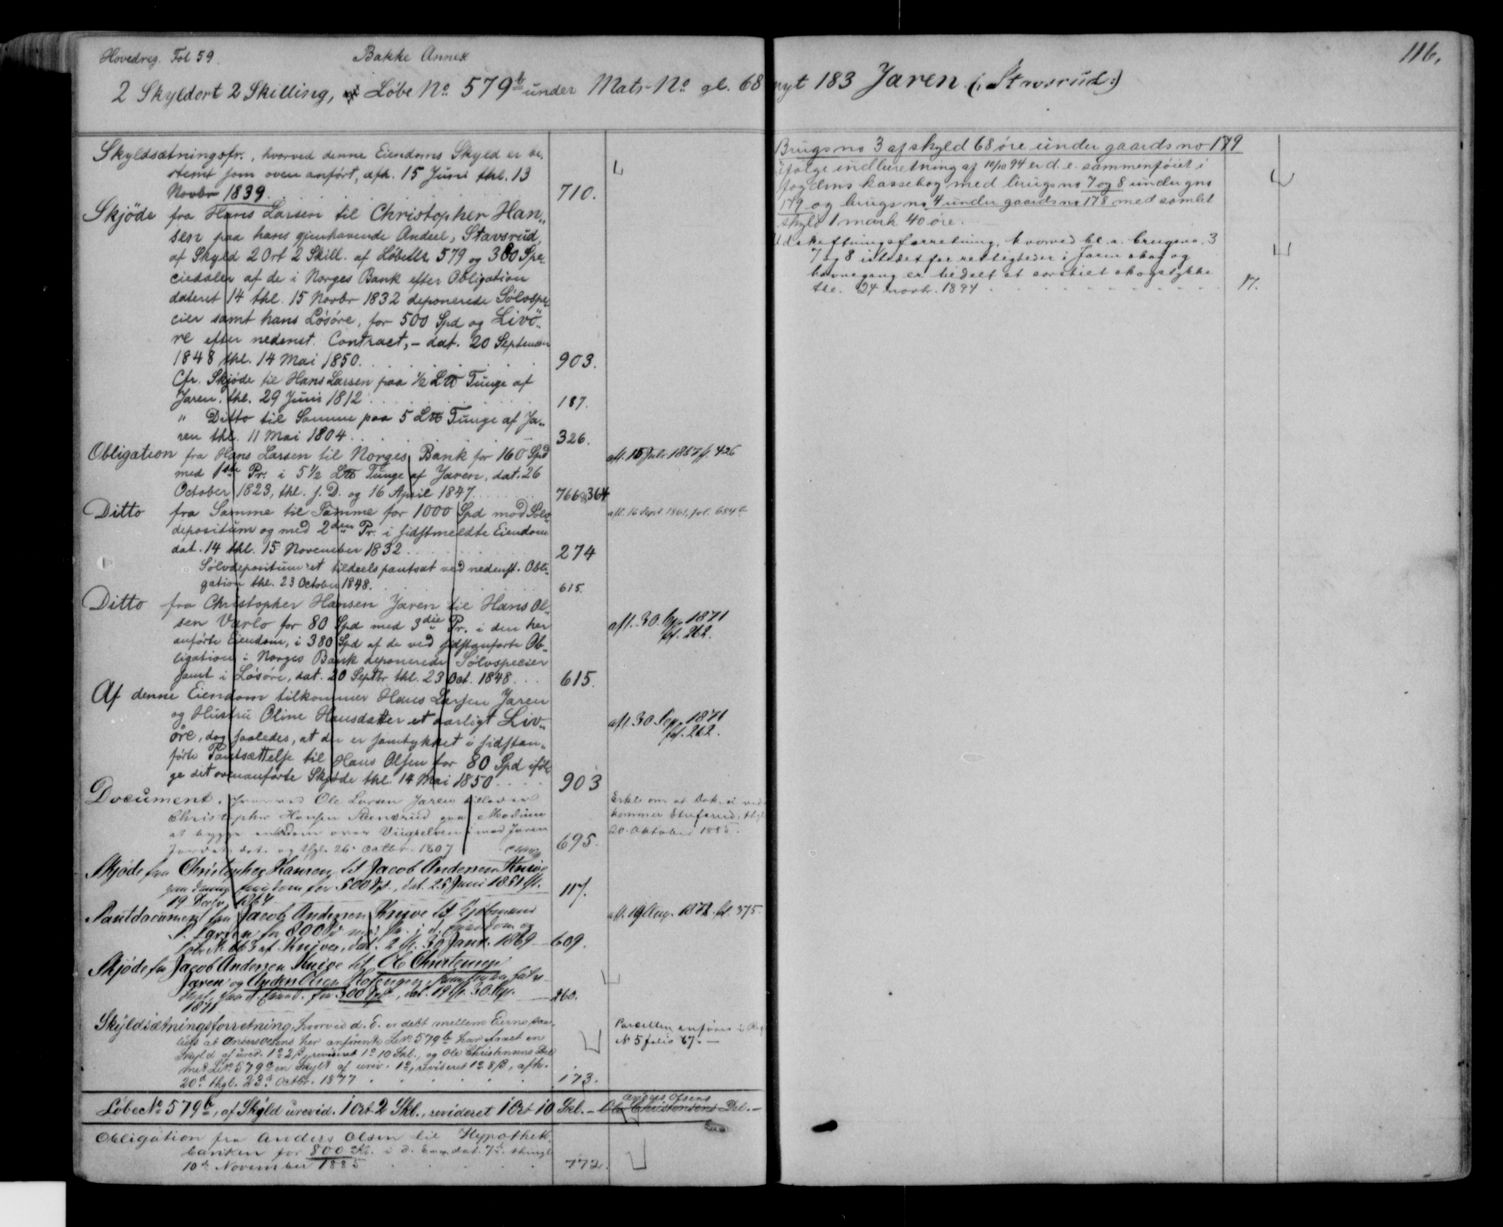 Hovedreg. Fol 59.
Bakke Annex
116.
2 Skyldort 2 Skilling, af Løbe No 579b under Mats-No gl. 68 nyt 183 Jaren (: Stavsrud:)
Skyldsætningsfr., hvorved denne Eiendoms Skyld er be-
stemt som oven anført, afh. 15 Juni thl. 13
Novbr 1839. 710.
Skjöde fra Hans Larsen til Christopher Han-
sen paa hans gjenhavende Andeel, Stavsrud,
af Skyld 2 Ort 2 Skill. af Løbe No 579 og 380 Spe-
ciedaler af de i Norges Bank efter Obligation
dateret 14 thl. 15 Novbr 1832 deponerede Sölvspe-
cier samt hans Lösöre, for 500 Spd og Livö-
re efter nedenst. Contract, - dat. 20 September
1848 thl. 14 Mai 1850. 903.
Cfr. Skjöde til Hans Larsen paa ½ L℔ Tunge af
Jaren, thl. 29 Juni 1812 187.
" Ditto til Samme paa 5 L℔ Tunge af Ja-
ren thl. 11 Mai 1804 326.
Obligation fra Hans Larsen til Norges Bank for 160 Spd
med 1ste Pr. i 5½ L℔ Tunge af Jaren, dat. 26
October 1823, thl. s. D. og 16 April 1847. 766 & 364
afl. 15 Juli 1867 f. 426
Ditto fra Samme til Samme for 1000 Spd mod Sölv-
depositum og med 2den Pr. i sidstmeldte Eiendom
dat. 14 thl. 15 November 1832. 274
afl. 16 Sept 1861, fol. 684b
Sölvdepositumet tildeels pantsat ved nedenst. Obli-
gation thl. 23 October 1848. 615.
Ditto fra Christopher Hansen Jaren til Hans Ol-
sen Varlo for 80 Spd med 3die Pr. i den her
anførte Eiendom, i 380 Spd af de ved sidstanførte Ob-
ligation i Norges Bank deponerede Sölvspecier
samt i Lösöre, dat. 20 Septbr thl. 23 Oct. 1848. 615.
afl. 30. Sep. 1871
fol. 262.
Af denne Eiendom tilkommer Hans Larsen Jaren
og Hustru Oline Hansdatter et aarligt Liv-
öre, dog saaledes, at der er samtykket i sidstan-
førte Pantsættelse til Hans Olsen for 80 Spd iföl-
ge det ovenanførte Skjöde thl. 14 Mai 1850 903
afl. 30 Sep. 1871
fol. 262.
Document, hvorved Ole Larsen Jaren tillader
Christopher Hansen Stensrud paa Modum
at bygge en Dam over Vingselven mod Jaren
dat. og thgl. 26 Octbr. 1807 695.
Erkl. om at Dok. ei ved-
kommer Stufsrud, thgl.
20. Oktober 1885.
Skjøde fra Christopher Hansen til Jacob Andersen Knive
paa denne Eiendom for 500 Spd., dat. 25 Juni 1851
19 1864 117.
Pantdocument fra Jacob Andersen Knive til
for 800 Spd med Pr. i d. Eiendom og
af Knive, dat. 2 thl. 30 Janr. 1869 609.
afl. 19 Aug. 1872. fol. 375.
Skjøde fra Jacob Andersen Knive til Ole Christensen
Jaren og Anders Olsen
paa d. Eiend. for 500 Spd, dat. 19 thl. 30 Sep.
1871 260.
Skyldsætningsforretning, hvorved d. E. er delt mellem Eierne saa-
ledes at Anders Olsens her anførente Lbn 579b har faaet en
Skyld af urev. 1 o 2 ß revideret 1 o 10 Skl., og Ole Christensens Del
med Lbn 579 en Skyld af urev. 1 o, revideret 1 o 8 ß, afh.
20d thgl. 23d Octbr. 1877 173.
Parcellen anføres i
No 5 folio 67.
Løbe No 579b, af Skyld urevid. 1 Ort 2 Skl., revideret 1 Ort 10 Skl. - Ole Christensens Del. -
Anders Olsens
Obligation fra Anders Olsen til Hypothek-
banken for 800 Kr. i d. E. dat. 7d thingl.
10d November 1885 772.
Brugsno 3 af skyld 68 øre under gaardsno 179
ifølge indberetning af 10/10 94 er d. e. sammenføiet i
fogdens kassebog med brugsno 7 og 8 under gno
179 og brugsno 4 under gaardsno 178 med samlet
skyld 1 mark 40 øre.
Udskiftningsforretning, hvorved bl. a. brugsno. 3
7 og 8 istedetfor rettigheder i Jaren skog og
havnegang er tildelt et særskilt skogstykke
thl. 24 novb. 1894 17.